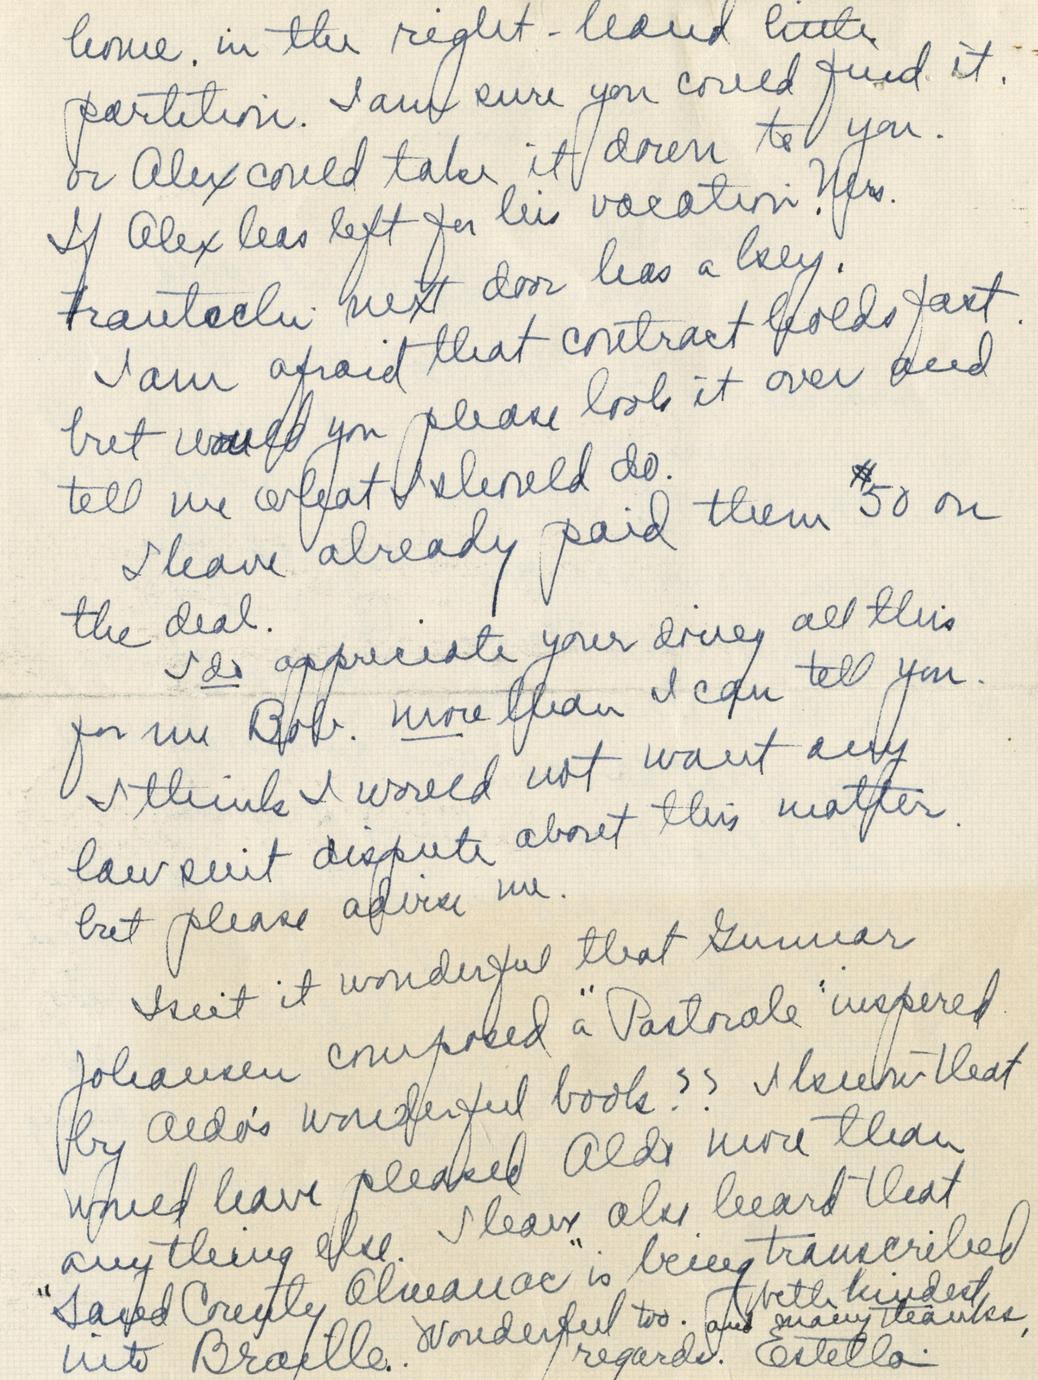 home. in the right-hand little
partition. I am sure you could find it.
or Alex could take it down to you.
If Alex has left for his vacation, Mrs.
Trautschi next door has a key.
I am afraid that contract holds fast.
but would you please look it over and
tell me what I should do.
I have already paid them $50 on
the deal.
I do appreciate your doing all this
for me Bob. more than I can tell you.
I think I would not want any
lawsuit dispute about this matter.
but please advise me.
Isn't it wonderful that Gunnar
Johansen composed a "Pastorale" inspered
by Aldo's wonderful book?? I know that
would have pleased Aldo more than
anything else. I have also heard that
"Sand County Almanac" is being transcribed
into Braille. Wonderful too.
with kindest
and many thanks,
regards. Estella